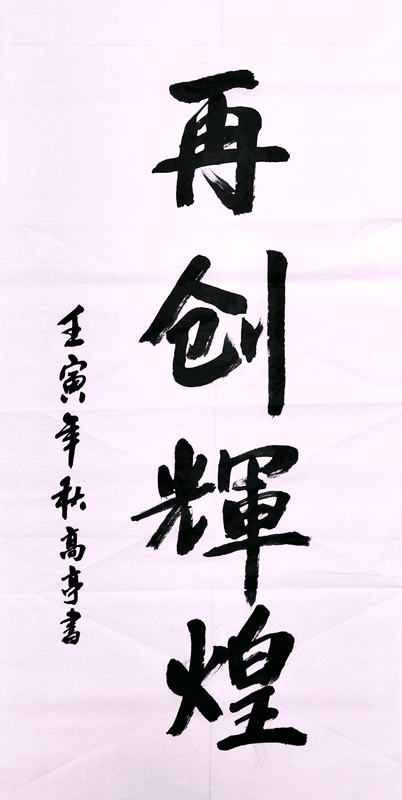 再创輝煌
壬寅年秋高亭書